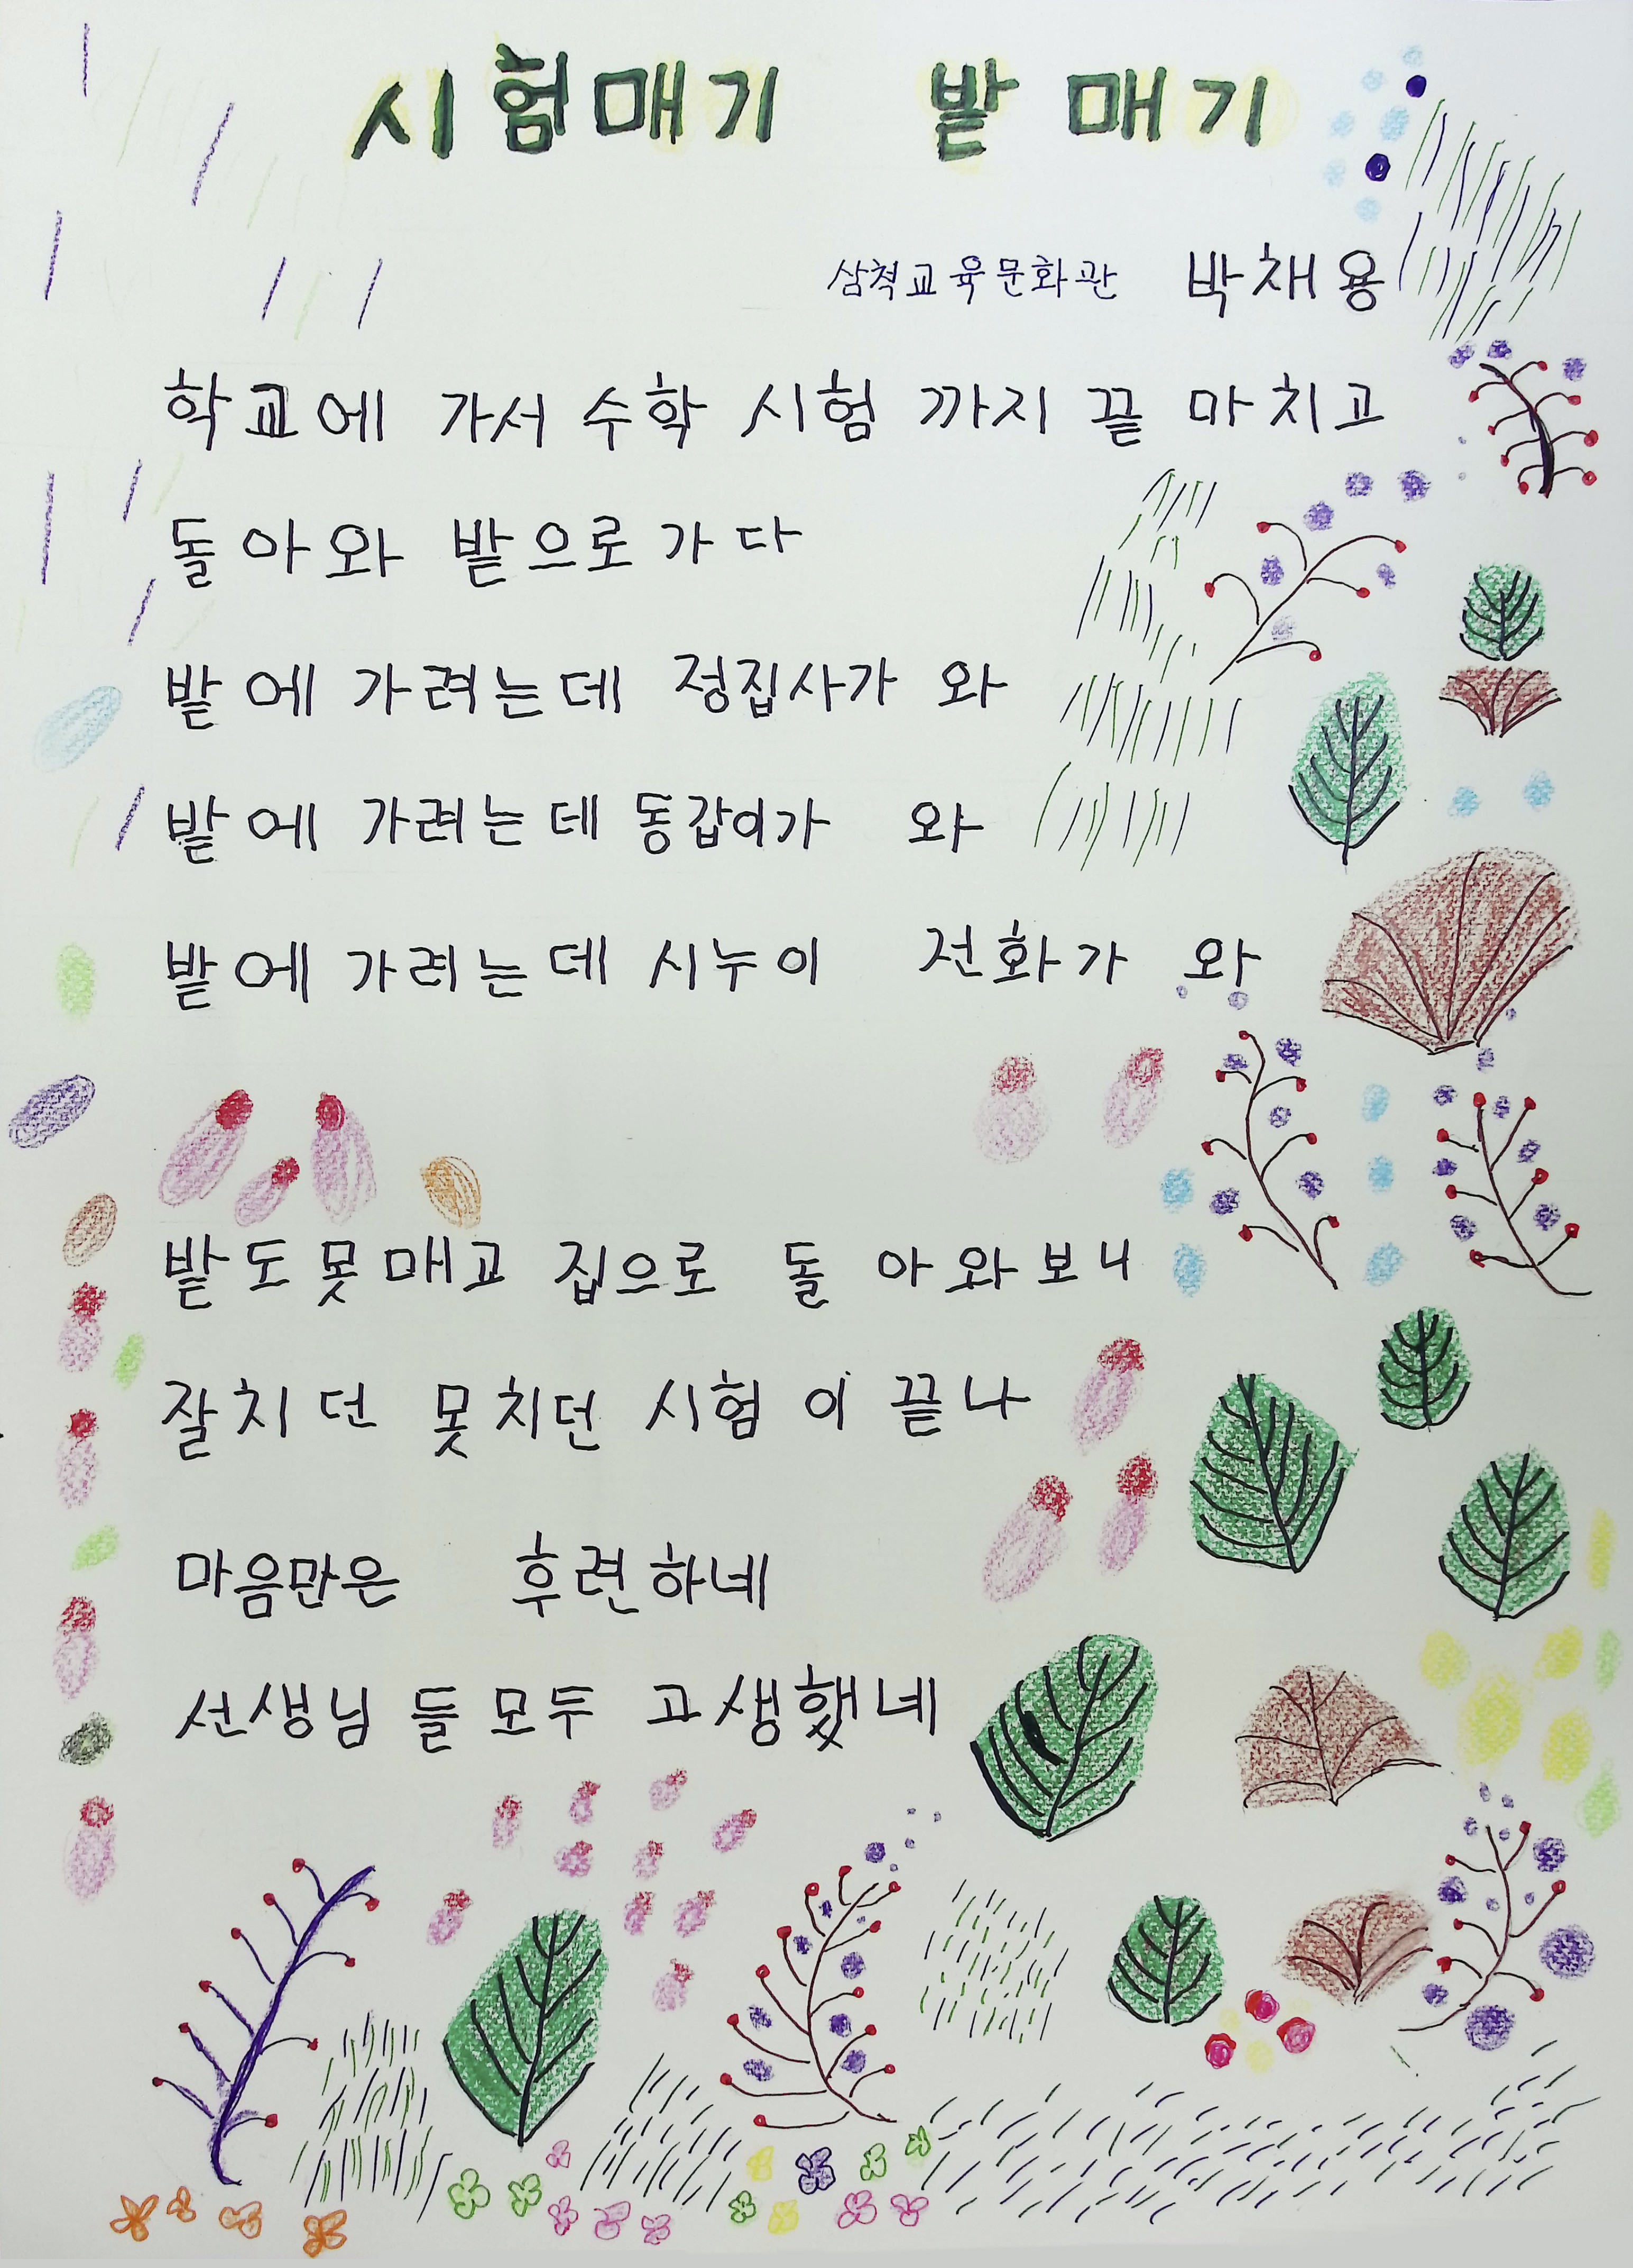 시험매기 밭매기
삼척교육문화관 박채용
학교에 가서 수학 시험 까지 끝 마치고
돌아와 밭으로 가다
밭에 가려는데 정집사가 와
밭에 가려는데 동갑이가 와
밭에 가려는데 시누이 전화가 와
밭도 못매고 집으로 돌아와보니
잘치던 못치던 시험이 끝나
마음만은 후련하네
선생님들 모두 고생했네